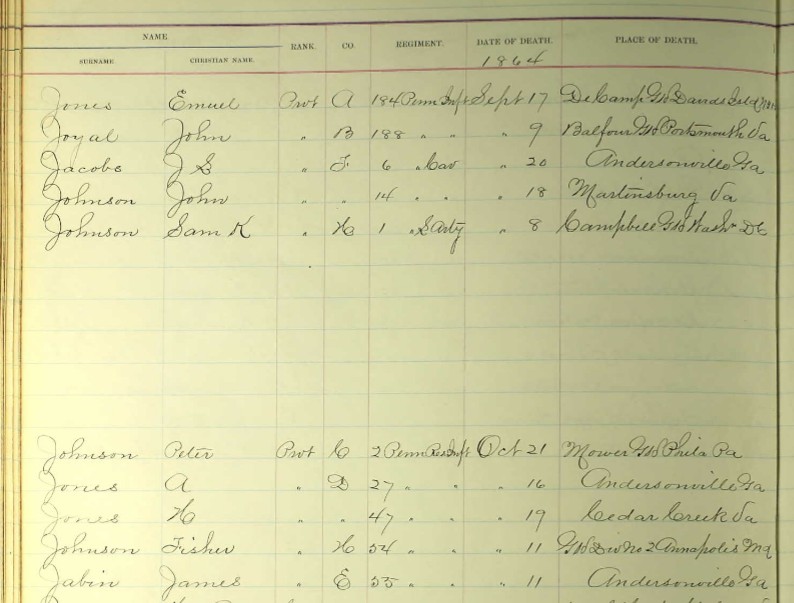 NAME RANK. CO. REGIMENT. DATE OF DEATH. PLACE OF DEATH.
SURNAME CHRISTIAN NAME. 1864
Jones Emuel Prvt A 184 Penn Inft Sept 17 De Camp GH Davids Isld
Joyal John " B 188 " " " 9 Balfour GH Portsmouth Va
Jacobs J S " F 6 " Cav " 20 Andersonville Ga
Johnson John " " 14 " " " 18 Martinsburg Va
Johnson Sam K " H 1 " S Arty " 8 Campbell GH Washn DC
Johnson Peter Prvt C 2 Penn Res Inft Oct 21 Mower GH Phila Pa
Jones A " D 27 " " " 16 Andersonville Ga
Jones H " " 47 " " " 19 Cedar Creek Va
Johnson Fisher " H 54 " " " 11 GH Div No 2 Annapolis Md
Jabin James " E 55 " " " 11 Andersonville Ga